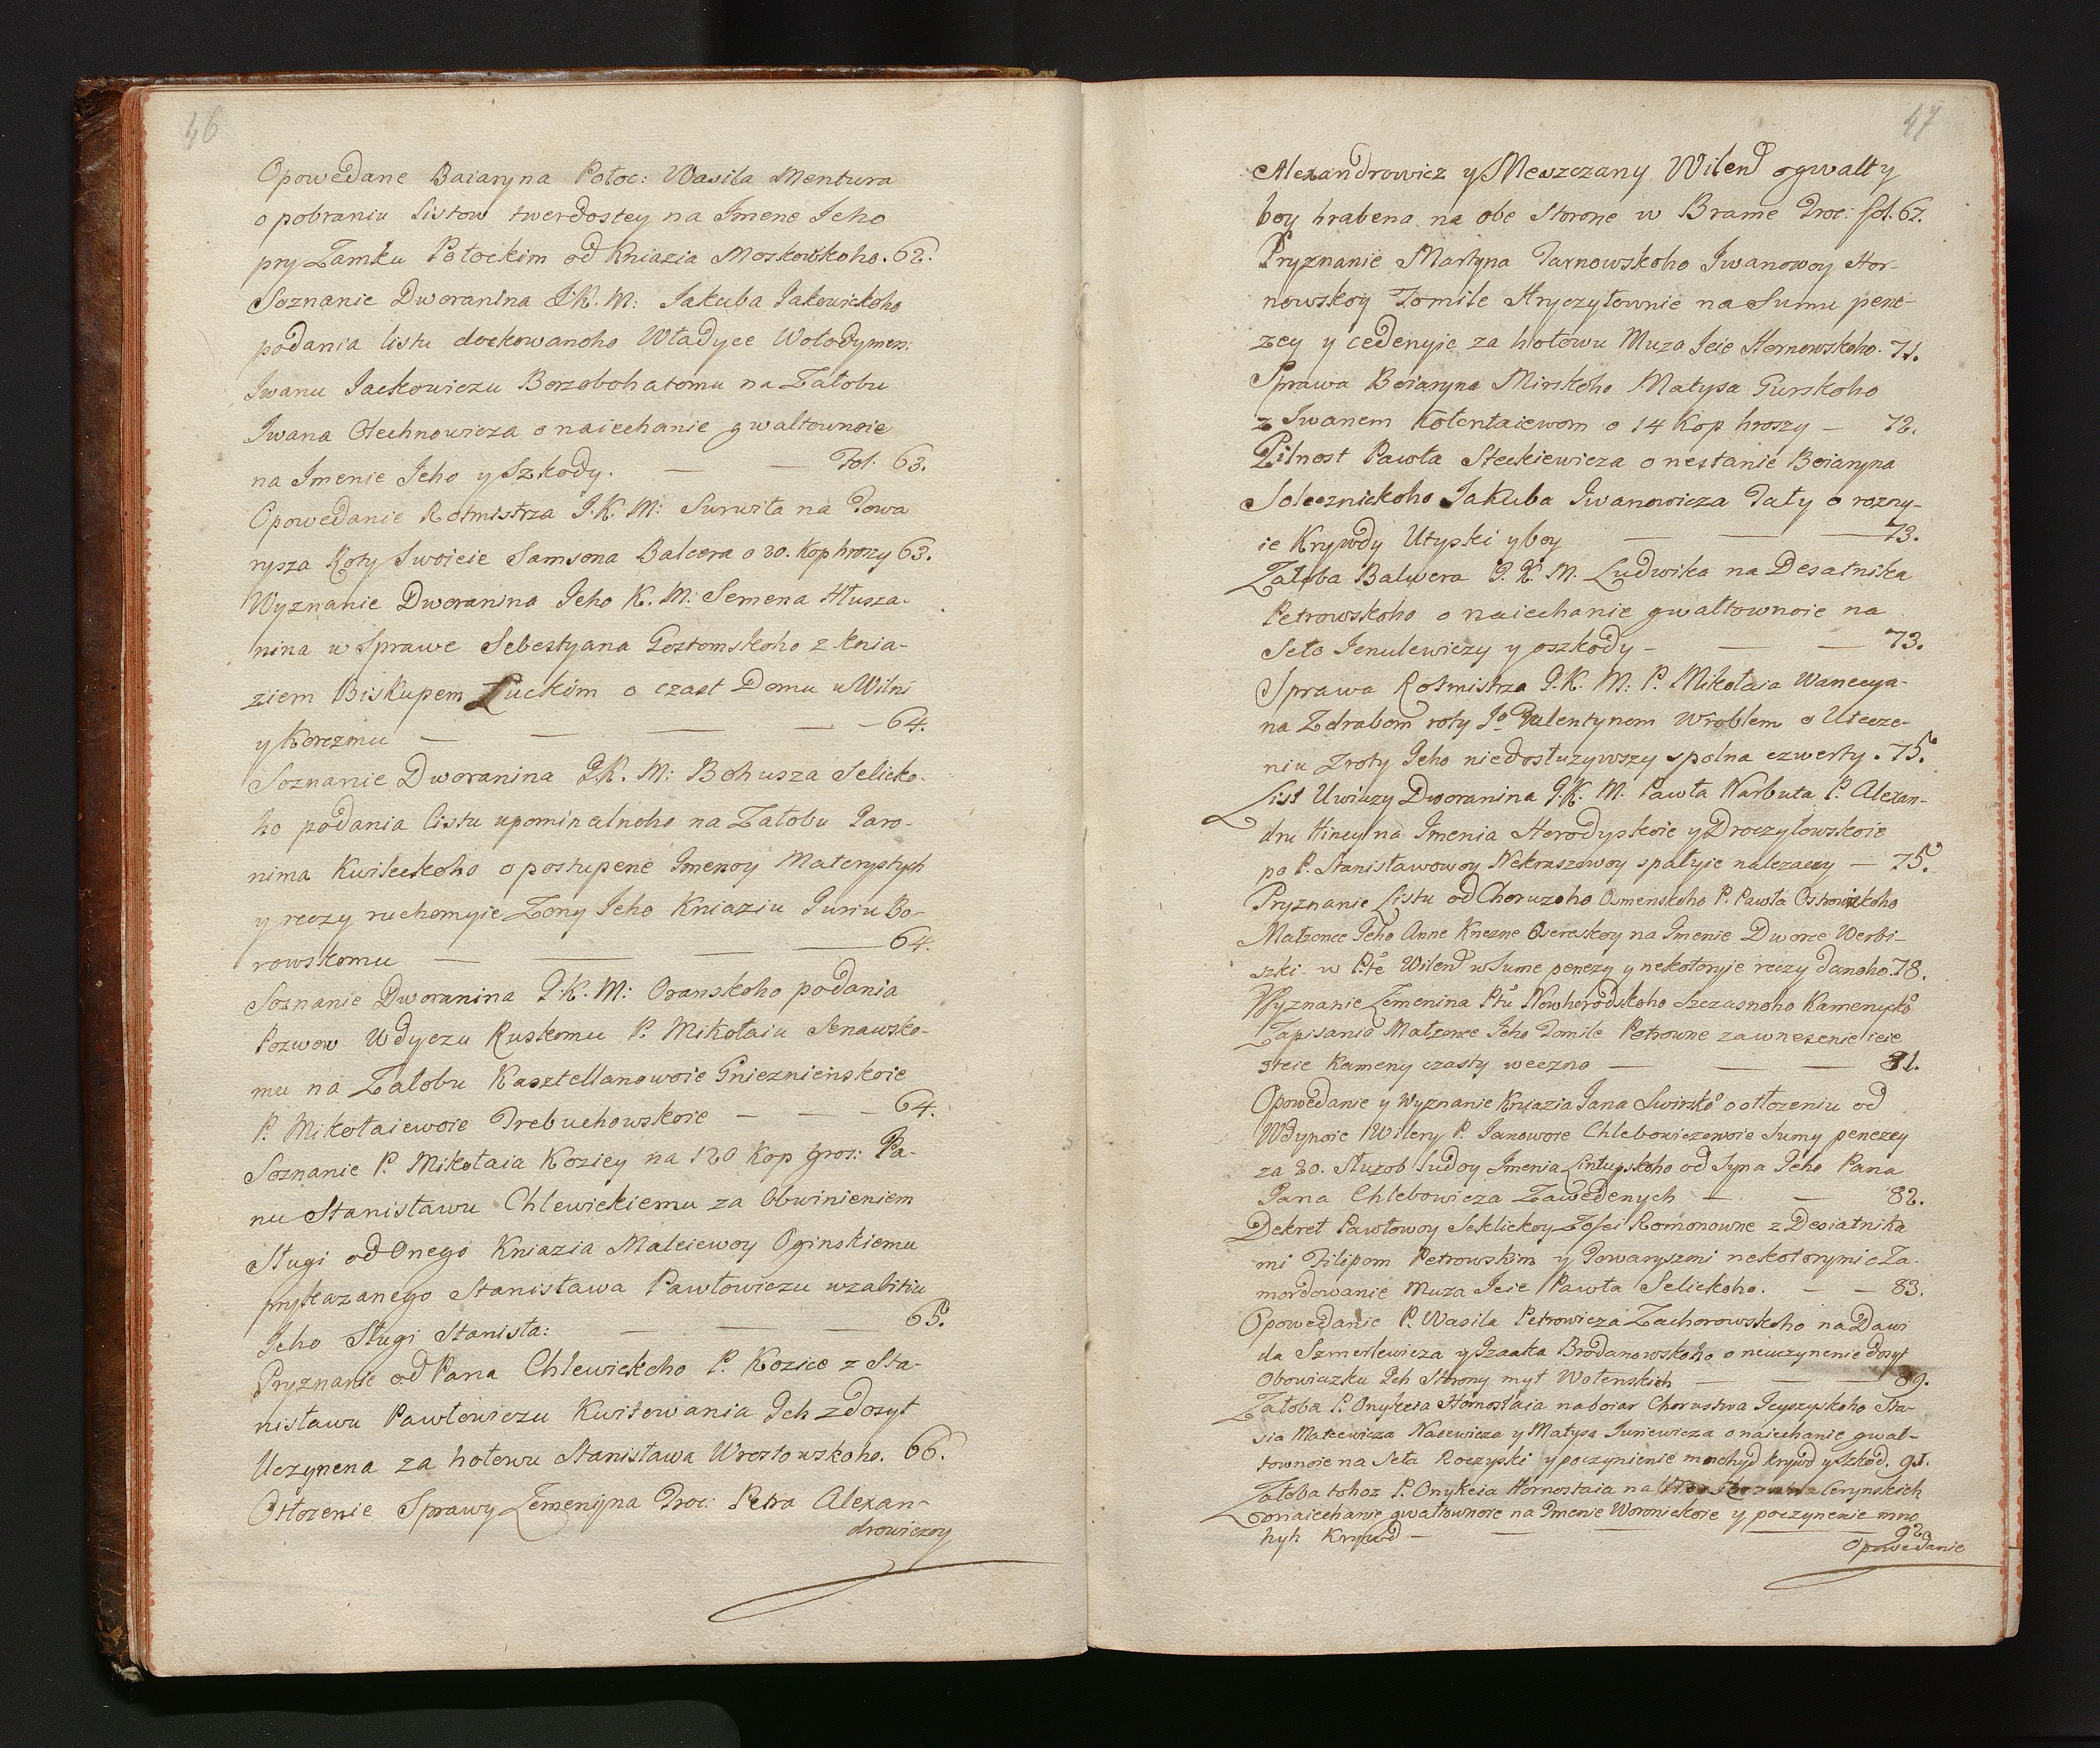 46
Opowedane Baiaryna Połoc: Wasila Mentura
o pobraniu Listow twerdostey na Jmene Jeho
pry Zamku Połockim od Kniazia Moskowskoho. 62.
Soznanie Dworanina J.K.M: Jakuba Jakowickoho
podania listu dockowanoho Władyce Wołodymer:
Jwanu Jackowiczu Borzobohatomu na Załobu
Jwana Olechnowicza o naiechanie gwaltownoie
na Jmenie Jeho y Szkody. — — Fol. 63.
Opowedanie Rotmistrza J.K.M: Surwiła na Towa
rysza Roty Swoieie Samsona Balcera o 20. Kop hroszy 63.
Wyznanie Dworanina Jeho K.M: Semena Hłusza-
nina w Sprawe Sebestyana Gostomskoho z knia-
ziem Biskupem Łuckim o czast Domu u Wilni
y Korczmu — — — — 64.
Soznanie Dworanina J.K.M: Bohusza Selicko-
ho podania listu upominalnoho na Załobu Jaro-
nima Kwileckoho o postupene Jmenoy Materystych
y reczy ruchomyie Zony Jeho Kniaziu Juriu Bo-
rowskomu — — — — 64.
Soznanie Dworanina J.K.M: Oranskoho podania
Pozwow Wdyczu Ruskomu P. Mikołaiu Senawsko-
mu na Załobu Kasztellanowoie Gniezninskoie
P. Mikołaiewoie Trebuchowskoie — — — 64.
Soznanie P. Mikołaia Koziey na 120 Kop gros: Pa-
nu Stanisławu Chlewickiemu za Obwinieniem
Sługi od Onego Kniazia Mateiewoy Oginskiemu
prykazanego Stanisława Pawłowiczu wzabitiu
Jeho Sługi Stanisła: — — — 65.
Pryznanie od Pana Chlewickoho P. Kozice z Sta-
nisławu Pawłowiczu Kwitowania Jch zdosyt
Uczynena za hołowu Stanisława Wrestowskoho. 66.
Otłozenie Sprawy Zemenijna Troc: Petra Alexan-
drowiczoy
47
Alexandrowicz y Meszczany Wilend ogwalty
boy hrabena na obe Storone w Brame Troc: fol. 67.
Pryznanie Martyna Tarnowskoho Jwanowoy Hor-
nowskoy Tomile Hryczyłownie na Sumu pene-
zey y cedenyie za hłowu Muza Jeie Hornowskoho. 71.
Sprawa Boiaryna Mirskoho Matysa Gurskoho
z Jwanem Kołentaiewom o 14 Kop hroszy — 72.
Pilnost Pawła Steckiewicza o nestanie Boiaryna
Solecznickoho Jakuba Jwanowicza Taty o rozny-
ie Krywdy Utyski y boy — — — 73.
Załoba Balwera J.K.M. Ludwika na Desatnika
Petrowskoho o naiechanie gwaltownoie na
Seło Jenulewiczy y oszkody — — — 73.
Sprawa Rotmistrza J.K.M: P. Mikołaia Wancza-
na Zdrabom roty Jo Walentynem Wroblem o Uiecze-
niu Zroty Jeho niedosłuzywszy spolna czwerty. 75.
List Uwiazy Dworanina J.K.M. Pawła Narbuta P. Alexan-
dru Hincy na Jmenia Horodyskoie y Droczyłowskoie
po P. Stanisławowoy Nekraszewoy spałyie nalezaczy — 75.
Pryznanie Listu od Choruzoho Osmenskoho P. Pawła Ostrowickoho
Małzonce Jeho Anne Knezne Ozereckoy na Jmenie Dworce Werbi-
szki w Pte Wilend w Sume penezy y nekotoryie reczy danoho. 78.
Wyznanie Zemenina Ptu Nowhorodskoho Szczasnoho Kamenycko
Zapisania Małzonce Jeho Tomile Petrowne zawnesenie ieie
steie Kameny czasty weczno — — — 81.
Opowedanie y Wyznanie Kniazia Jana Swirsko o otłozeniu od
Wdynoie Wilery P. Janowoie Chlebowiczowoie Sumy penezey
za 20. Służob Ludoy Jmenia Lintupskoho od Syna Jeho Pana
Jana Chlebowicza Zawedenych — — 82.
Dekret Pawłowoy Seklickoy Zofei Romonowne z Desiatnika
mi Filipom Petrowskim y Towaryszmi nekotorymi o Za-
mordowanie Muza Jeie Pawła Selickoho. — — 83.
Opowedanie P. Wasila Petrowicza Zachorowskoho na Dawi
da Szmerlewicza y Jzaaka Brodanowskoho o neuczynenie dosyt
Obowiazku Jch Storony myt Wołenskich — — — 89.
Załoba P. Onykeia Hornostaia na boiar Chorustwa Jeyszyskoho Sta-
sia Matcewicza Nacewicza y Matysa Juriewicza o naiechanie gwal-
townoie na Seła Roczyski y poczynienie mnohyd krywd y szkod. 91.
Załoba tohoz P. Onykeia Hornostaia na cerynskich
o naiechanie gwałtownoie na Jmenie Woronickoie y poczynenie mno
hyh Krywd — — — — 92.
Opowedanie